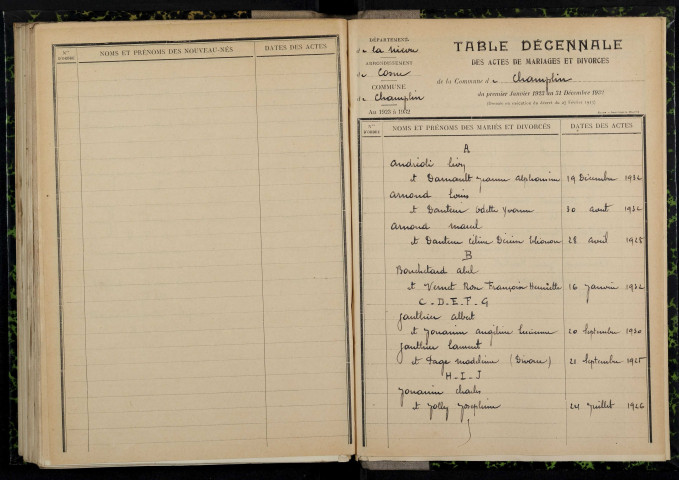 Nos D'ORDRE
NOMS ET PRÉNOMS DES NOUVEAU-NÉS
DATES DES ACTES
DÉPARTEMENT
de la Nièvre
ARRONDISSEMENT
de Cosne
COMMUNE
de Champlin
An 1923 à 1932
TABLE DÉCENNALE
DES ACTES DE MARIAGES ET DIVORCES
de la Commune de Champlin
du premier Janvier 1923 au 31 Décembre 1932
Nos D'ORDRE
NOMS ET PRÉNOMS DES MARIÉS ET DIVORCÉS
DATES DES ACTES
A
andriedi
et Darnault Jeanne alphonsine 19 Décembre 1932
arnoud Louis
et Dauteu odette Yvonne 30 aout 1932
arnoud marcel
et Dauteu Céline 28 avril 1928
B
Bouchetard abel
et Vernet Rose Françoise Henriette 16 Janvier 1932
C - D - E - F - G
Gauthier albert
et Jouanin angéline Lucienne 20 Septembre 1930
Gauthier Laurent
et Page madeleine (Divorce) 22 Septembre 1925
H - I - J
Jouanin charles
et Jolly Joséphine 24 Juillet 1926